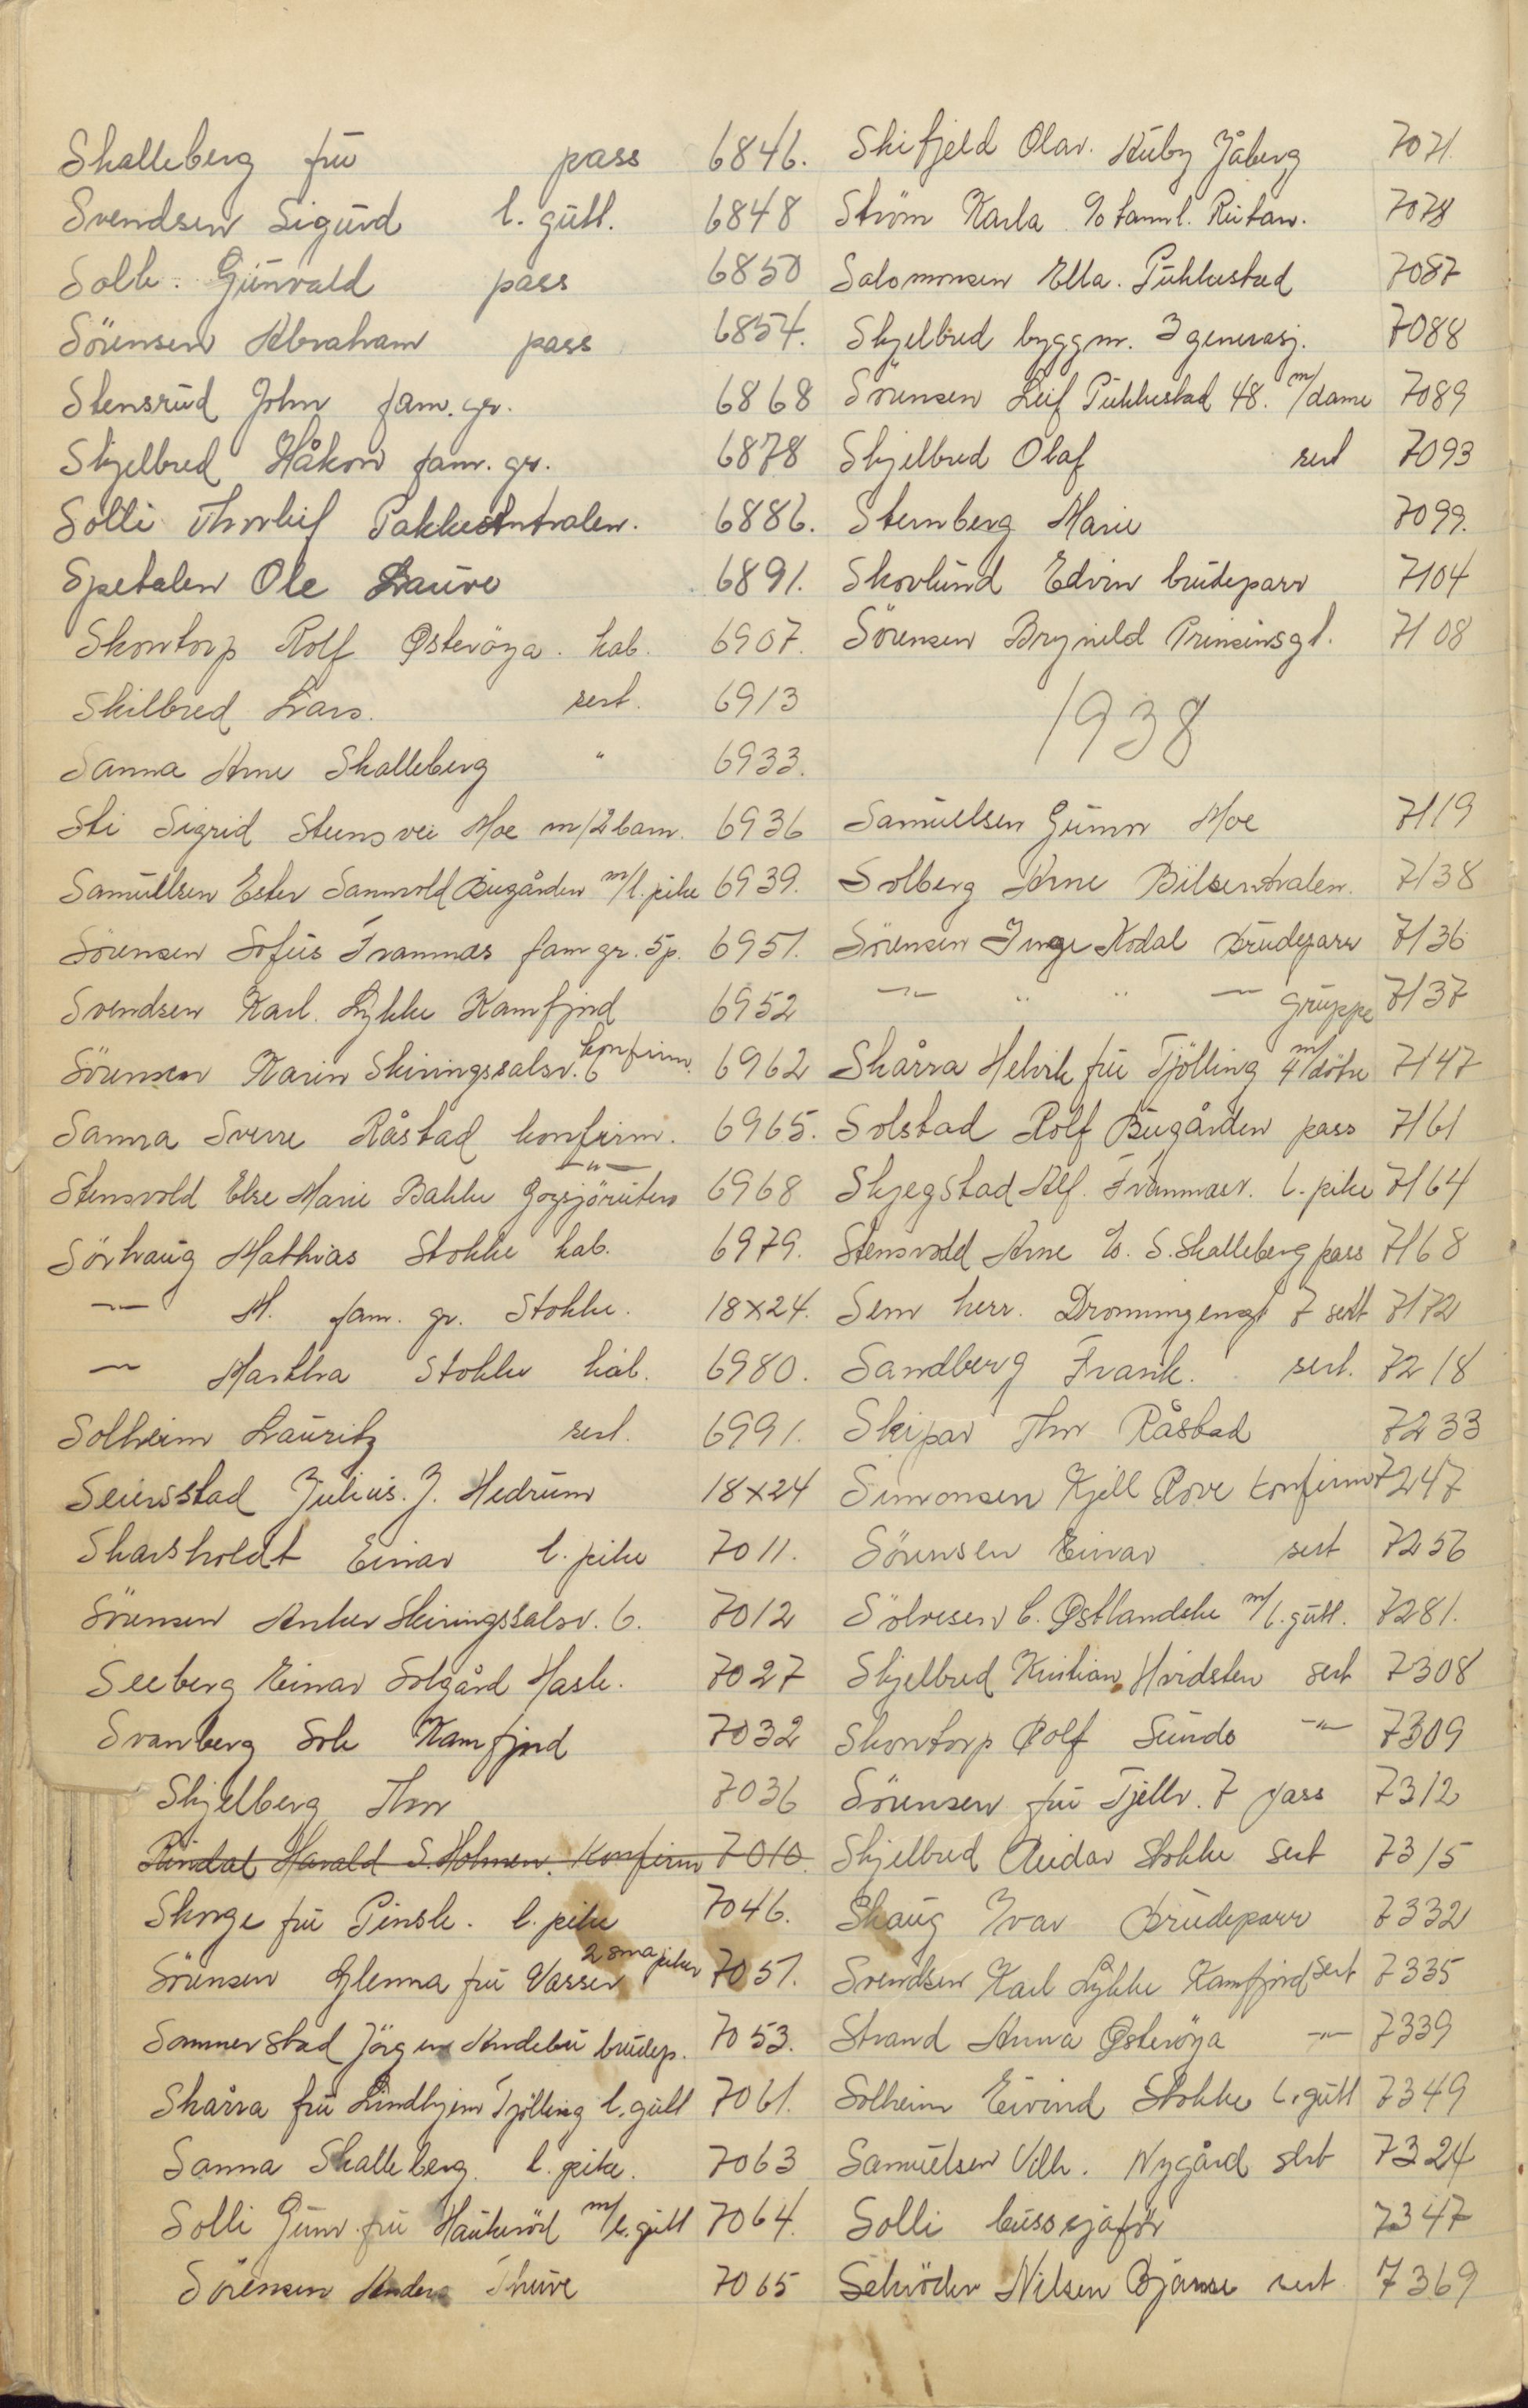 Skalleberg frü pass 6846.
Svendsen Sigurd l. gutt. 6848
Solli. Gunvald pass 6850
Sörensen Abraham pass 6854.
Stensrud John fam. gr. 6868
Skjelbred Håkon fam. gr. 6878
Solli Thorleif Pakkesentralen. 6886.
Spetalen Ole Lauve 6891.
Skontorp Rolf Østeröya. kab. 6907.
Skilbred Lars. sert. 6913
Sanna Arne Skalleberg " 6933.
Sti Sigrid Steensvei Moe m/2 barn. 6936
Samuelsen Ester Sannvold Bugården m/l. pike 6939.
Sörensen Sofus Framnæs fam gr. 5p. 6951.
Svendsen Karl. Lykke Kamfjord 6952
Sörensen Karin Skiringssalsv. 6 konfirm. 6962
Sanna Sverre Råstad konfirm. 6965.
Stensvold Else Marie Bakke Gogsjöruten -"- 6968
Sörhaug Mathias Stokke kab. 6979.
-"- M. fam. gr. Stokke. 18x24.
-"- Martha Stokke kab. 6980.
Solheim Lauritz sert. 6991.
Seiersstad Julius. J. Hedrum 18x24
Skarsholdt Einar l. pike 7011.
Sörensen Anker Skiringssalsv. 6. 7012
Seeberg Einar Solgård Hasle. 7027
Svanberg Sole Kamfjord 7032
Skjelberg Thor 7036
Rindal Harald S. Holmen. Konfirm 7010.
Skorge frü Pinsle. l. pike 7046.
Sörensen Glenna frü Vasser 2 små piker 7051.
Sommerstad Jörgen Andebu brudep. 7053.
Skårra frü Lindhjem Tjölling l. gutt 7061.
Sanna Skalleberg. l. pike. 7063
Solli Gunv. frü Haukeröd m/l. gutt 7064.
Sörensen Anders Thurve 7065
Skifjeld Olav. Ruby Jåberg 7071.
Ström Karla c/o tannl. Rustan. 7078
Salomonsen Ella. Pukkestad 7087
Skjelbred byggm. 3 generasj. 7088
Sörensen Leif Pukkestad 48. m/dame 7089
Skjelbred Olaf sert 7093
Sternberg Marie 7099.
Skovlund Edvin brudepar 7104
Sörensen Brynild Prinsensgt. 7108
1938
Samuelsen Gunnr Moe 7119
Solberg Arne Bilsentralen. 7138
Sörensen Inge Kodal brudepar 7136
-"- " " -"- gruppe 7137
Skårra Helvik frü Tjölling m/4 dötre 7147
Solstad Rolf Bugården pass 7161
Skjegstad Alf. Framnæsv. l. pike 7164
Stensvold Arne c/o. S. Skalleberg pass 7168
Sem herr. Dronningensgt 7 sert 7172
Sandberg Frank. sert. 7218
Skipar Thor Råstad 7233
Simonsen Kjell Rove konfirm 7247
Sörensen Einar sert 7256
Sölvesen C. Østlandske m/l. gutt. 7281.
Skjelbred Kristian Hvidsten sert 7308
Skontorp Rolf Sundo -"- 7309
Sörensen frü Tjellv. 7 pass 7312
Skjelbred Reidar Stokke sert 7315
Skaug Ivar brudepar 7332
Svendsen Karl Lykke Kamfjord sert 7335
Strand Anna Østeröya -"- 7339
Solheim Eivind Stokke l. gutt 7349
Samuelsen Vilh. Nygård sert 7324
Solli bussjåför 7347
Schröder Nilsen Bjarne sert 7369